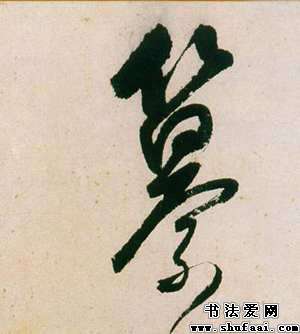 纂
书法爱网
www.shufaai.com